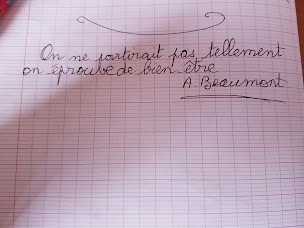 On ne partirait pas tellement
on éprouve de bien être
A. Beaumont